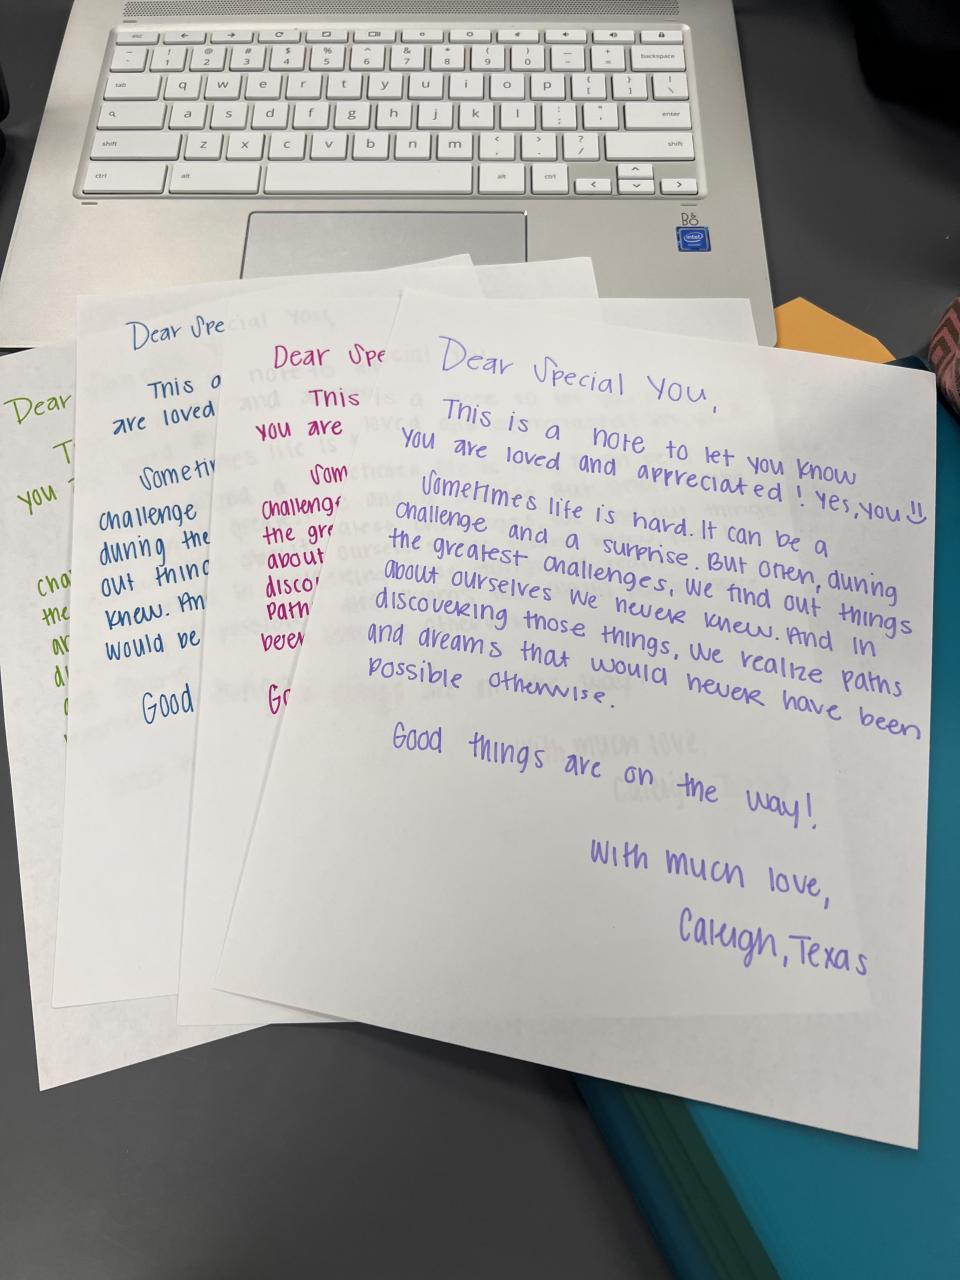 esc
~ ! @ # $ % ^ & * ( ) — +
` 1 2 3 4 5 6 7 8 9 0 - = backspace
tab q w e r t y u i o p { [ } ] | \
a s d f g h j k l : ; " ' enter
shift z x c v b n m < , > . ? / shift
ctrl alt alt ctrl
B&O
intel
Dear
T
you
cha
the
Dear Spe
This
are loved
Sometim
challenge
during the
out thing
knew. An
would be
Good
Dear Spe
This
you are
Som
challeng
the gre
about
disco
path
been
Go
Dear Special You,
This is a note to let you know
you are loved and appreciated! Yes, you
Sometimes life is hard. It can be a
challenge and a surprise. But often, during
the greatest challenges, we find out things
about ourselves we never knew. And in
discovering those things, we realize paths
and dreams that would never have been
possible otherwise.
Good things are on the way!
With much love,
Caleigh, Texas